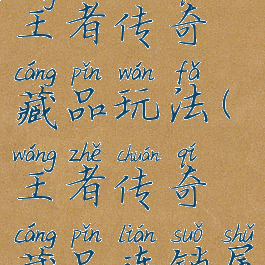 王者传奇
cáng pǐn wán fǎ
藏品玩法(
wáng zhě chuán qí
王者传奇
cáng pǐn lián suǒ shǔ
藏品连锁属